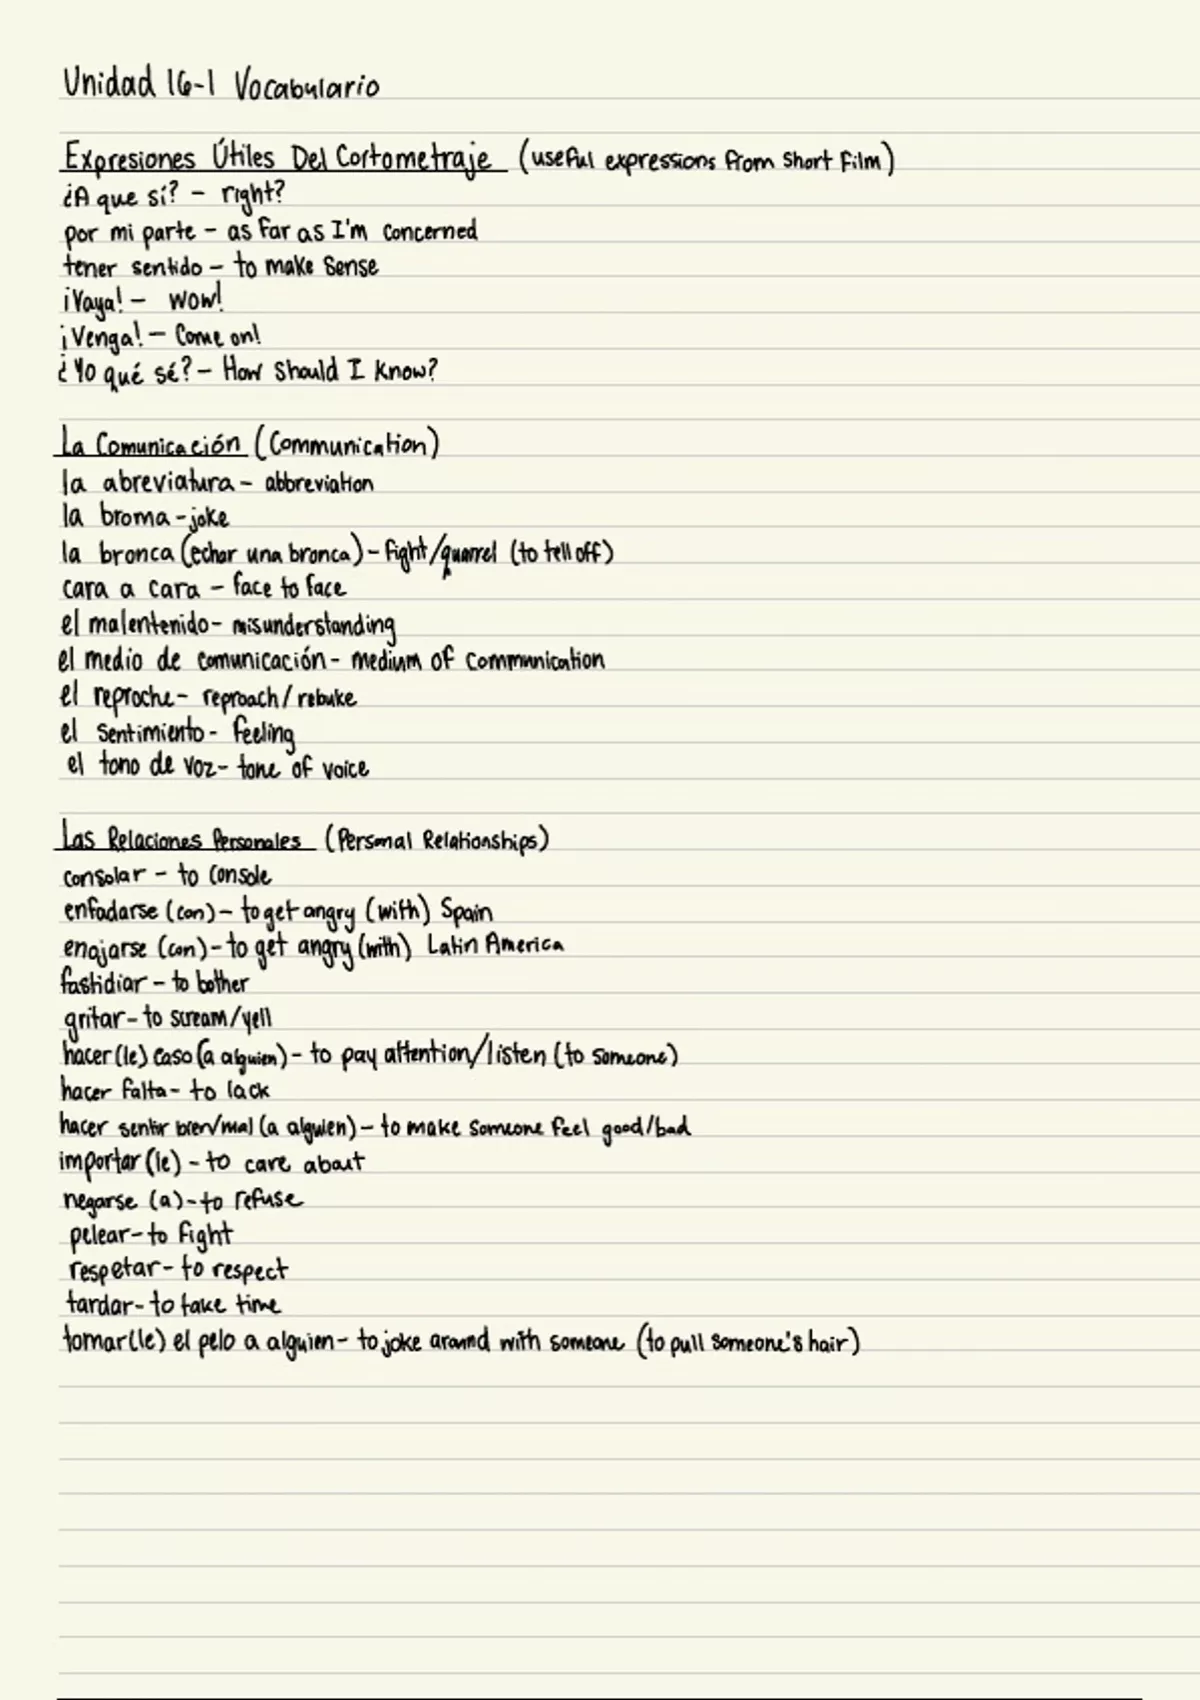 Unidad 16-1 Vocabulario
Expresiones Útiles Del Cortometraje (useful expressions from short film)
¿A que sí? - right?
por mi parte - as far as I'm concerned
tener sentido - to make sense
¡Vaya! - wow!
¡Venga! - Come on!
¿Yo qué sé? - How should I know?
La Comunicación (Communication)
la abreviatura - abbreviation
la broma - joke
la bronca (echar una bronca) - fight/quarrel (to tell off)
cara a cara - face to face
el malentenido - misunderstanding
el medio de comunicación - medium of communication
el reproche - reproach/rebuke
el sentimiento - feeling
el tono de voz - tone of voice
Las Relaciones Personales (Personal Relationships)
consolar - to console
enfadarse (con) - to get angry (with) Spain
enojarse (con) - to get angry (with) Latin America
fastidiar - to bother
gritar - to scream/yell
hacer(le) caso (a alguien) - to pay attention/listen (to someone)
hacer falta - to lack
hacer sentir bien/mal (a alguien) - to make someone feel good/bad
importar (le) - to care about
negarse (a) - to refuse
pelear - to fight
respetar - to respect
tardar - to take time
tomar(le) el pelo a alguien - to joke around with someone (to pull someone's hair)